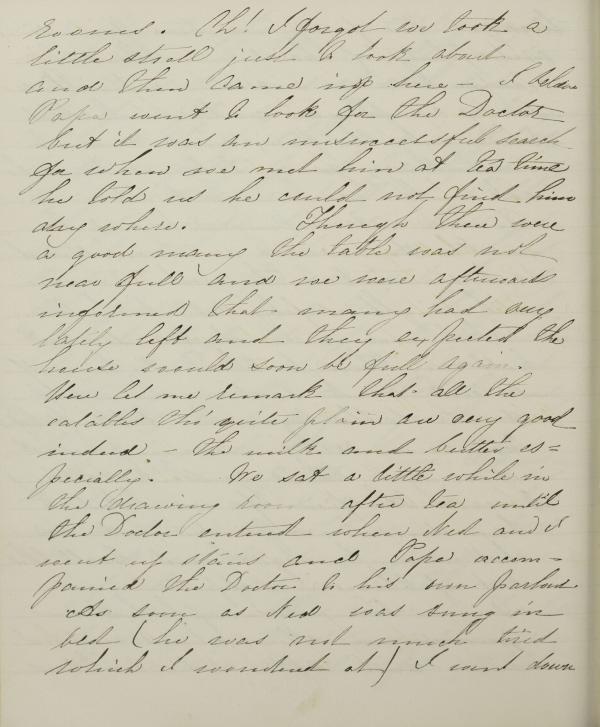 rooms. Oh! I forgot we took a
little stroll just to look about
and then came in here - I believe
Papa went to look for the Doctor
but it was an unsuccessful search
for when we met him at tea time
he told us he could not find him
any where. Though there were
a good many the table was not
near full and we were afterwards
informed that many had very
lately left and they expected the
house would soon be full again.
Here let me remark that all the
eatables tho' quite plain are very good
indeed - the milk and butter es=
pecially. We sat a little while in
the drawing room after tea until
the Doctor entered when Ned and I
went up stairs and Papa accom-
panied the Doctor to his own parlour
As soon as Ned was snug in
bed (he was not much tired
which I wondered at) I went down